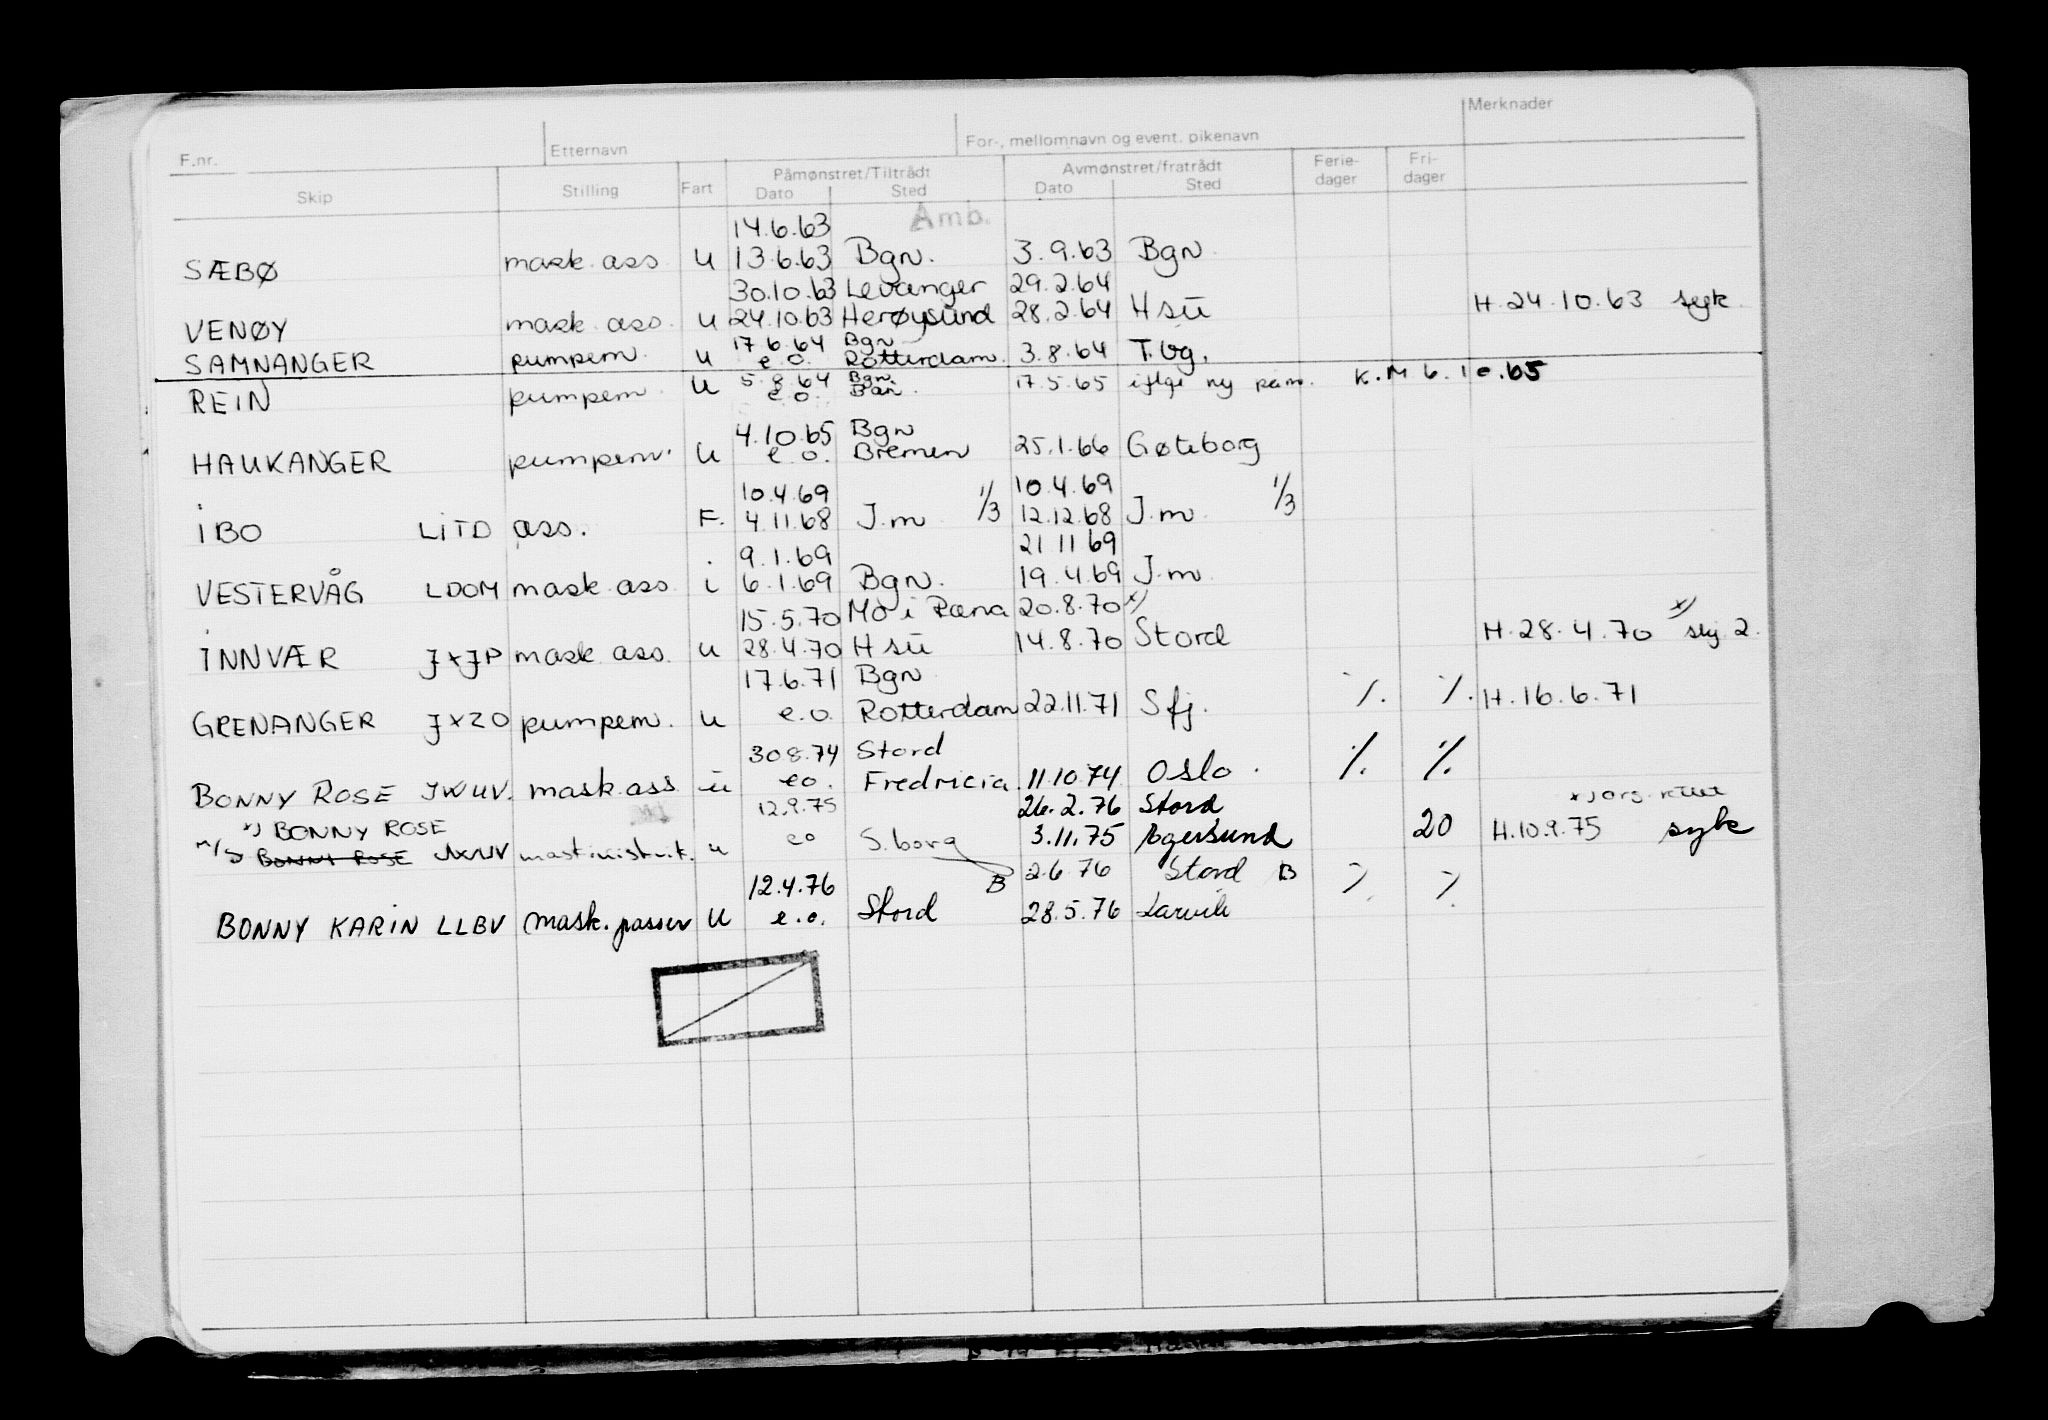 Merknader
F.nr. Etternavn For-, mellomnavn og event. pikenavn
Skip Stilling Fart Påmønstret/Tiltrådt Dato Sted Avmønstret/fratrådt Dato Sted Ferie-dager Fri-dager
14.6.63 Amb.
SÆBØ mask. ass u 13.6.63 Bgn. 3.9.63 Bgn.
30.10.63 Levanger 29.2.64
VENØY mask. ass. u 24.10.63 Herøysund 28.2.64 Hsü H. 24.10.63 syk.
17.6.64 Bgn
SAMNANGER pumpem. u e.o. Rotterdam. 3.8.64 T.bg.
5.8.64 Bgn.
REIN pumpem. u e.o. 17.5.65 iflge ny påm. K.M 6.10.65
4.10.65 Bgn
HAUKANGER pumpem. u e.o. Bremen 25.1.66 Gøteborg
10.4.69 1/3 10.4.69 1/3
IBO LITD ass. F. 4.11.68 J.m 12.12.68 J.m.
9.1.69 21 11 69
VESTERVÅG LDOM mask. ass. i 6.1.69 Bgn. 19.4.69 J.m.
15.5.70 Mo i Rana 20.8.70 x)
INNVÆR JXJP mask. ass. u 28.4.70 Hsü 14.8.70 Stord H. 28.4.70 x) 2.
17.6.71 Bgn
GRENANGER JXZO pumpem. u e.o. Rotterdam 22.11.71 Sfj. % % H. 16.6.71
30 8.74 Stord
BONNY ROSE JWUV. mask.ass ü eo. Fredricia. 11.10.74 Oslo. % %
12.9.75 26.2.76 Stord
x) BONNY ROSE x) org. rettet
M/S BONNY ROSE JWUV u eo S.borg 3.11.75 Egersund 20 H.10.9.75 syk
12.4.76 B 2.6.76 Stord B % %
BONNY KARIN LLBV mask. passer u e.o. Stord 28.5.76 Larvik